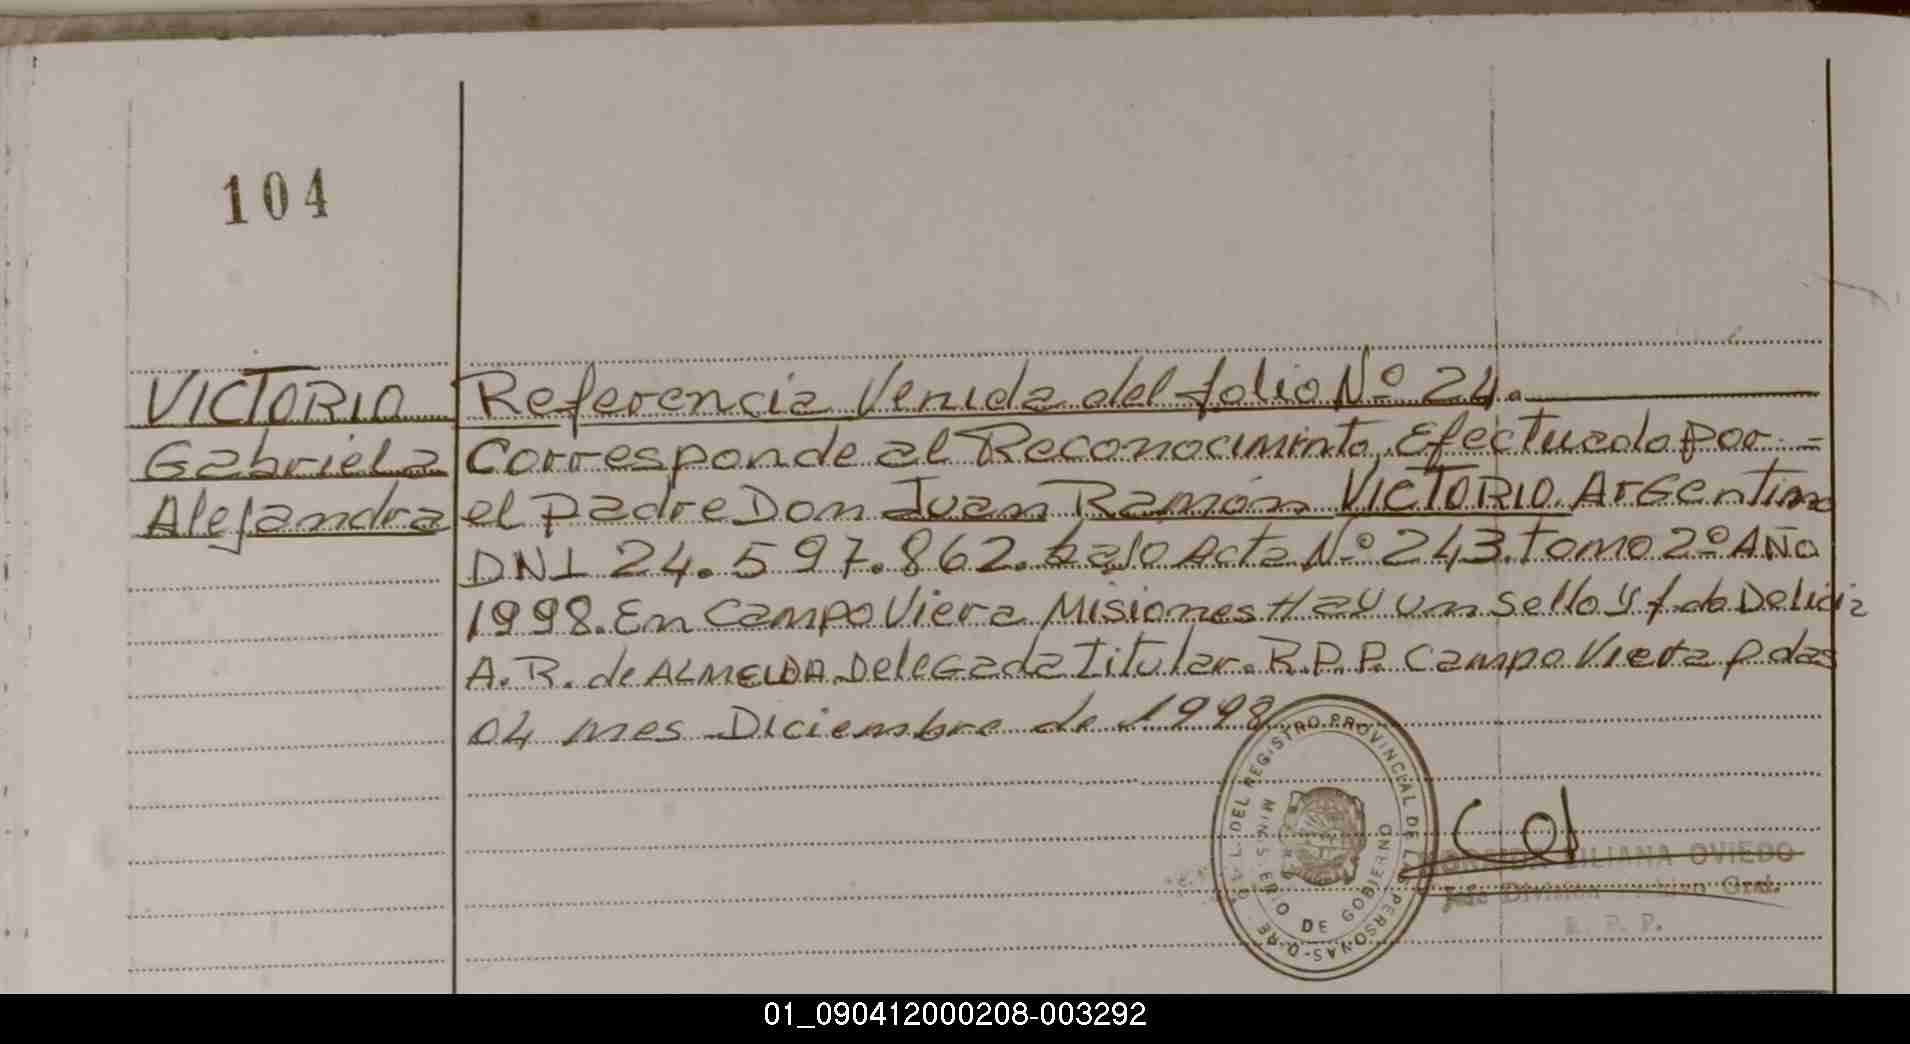 104
VICTORIO
Gabriela
Alejandra
Referencia Venida del folio Nº 24.
Corresponde al Reconociminto, Efectuado por =
el padre Don Juan Ramón VICTORIO. Argentino
DNI 24.597.862. bajo Acta Nº 243. Tomo 2º AÑO
1998. En Campo Viera Misiones Hay un sello y f.do Delicia
A. R. de ALMEIDA Delegada Titular. R.P.P. Campo Viera Pdas
04 mes Diciembre de 1998
DEL REGISTRO PROVINCIAL DE LAS PERSONAS
MINISTERIO DE GOBIERNO
LILIANA OVIEDO
Jefe División Gral.
R. P. P.
01_090412000208-003292